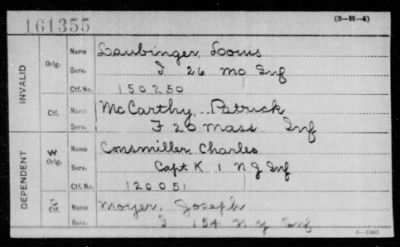 161355
(3-H-4)
INVALID
Orig. Name Laubinger, Louis
Serv. I 26 Mo Inf
Ctf. No. 150250
Ctf. Name McCarthy, Patrick
Serv. F 20 Mass Inf
DEPENDENT
W Orig. Name Consmiller, Charles
Serv. Capt K 1 N J Inf
Ctf. No. 120051
C Ctf. Name Moyer, Joseph
Serv. I 154 N Y Inf